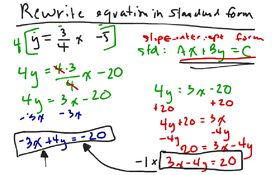 Rewrite equation in standard form
slope-intercept form
4 [ y = 3/4 x - 5 ]
std: Ax + By = C
4y = 4·3/4 x - 20
4y = 3x - 20
-3x -3x
-3x + 4y = -20
4y = 3x - 20
+20 +20
4y + 20 = 3x
-4y -4y
20 = 3x - 4y
-1 × 3x - 4y = 20